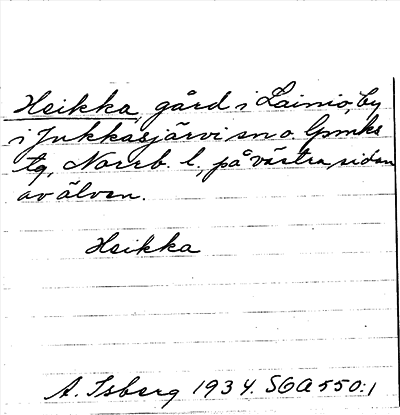 Heikka, gård i Lainio, by
i Jukkasjärvi sn o. Gpmks
tg, Norrb. l., på västra sidan
av älven.
Heikka
A. Isberg 1934. SGA 550:1